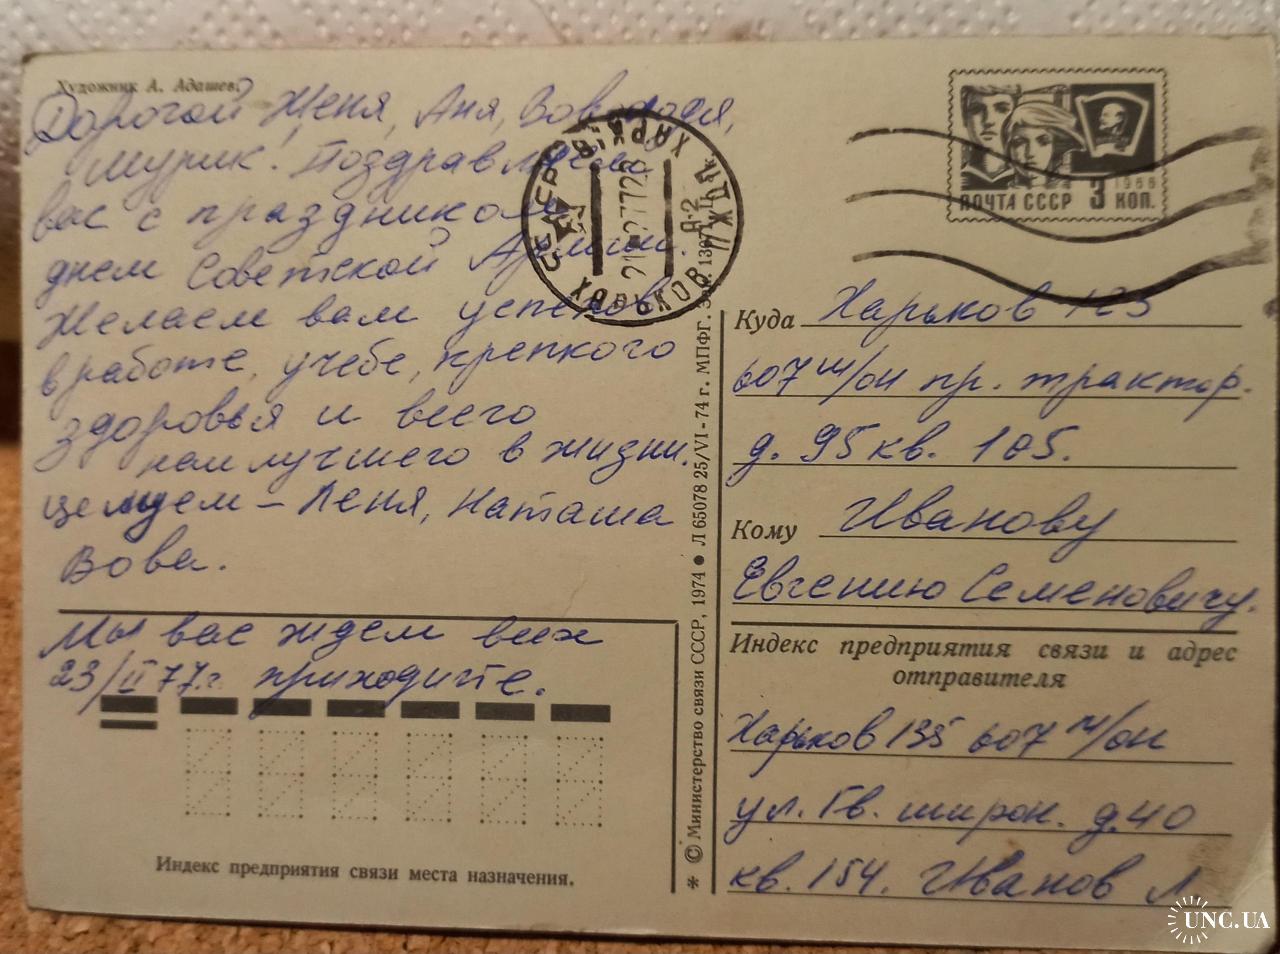 Художник А. Адашев.
Дорогой Женя, Аня, Вова
Мурик. Поздравляем
вас с праздником
днем Советской Армии.
Желаем вам успехов
в работе, учебе, крепкого
здоровья и всего
наилучшего в жизни.
целуем – Леня, Наташа
Вова.
Мы вас ждем всех
23/II 77.г. приходите.
Индекс предприятия связи места назначения.
* © Министерство связи СССР, 1974 ● Л 65078 25/VI-74 г. МПФГ.
СССР ХАРЬКОВ
ПОЧТА СССР 3 КОП.
1966
Куда Харьков 123
607 м/он пр. трактор.
д. 95 кв. 105.
Кому Иванову
Евгению Семеновичу.
Индекс предприятия связи и адрес
отправителя
Харьков 135 607 м/он
ул. Гв. широн. д.40
кв. 154. Иванов Л.
UNC.UA